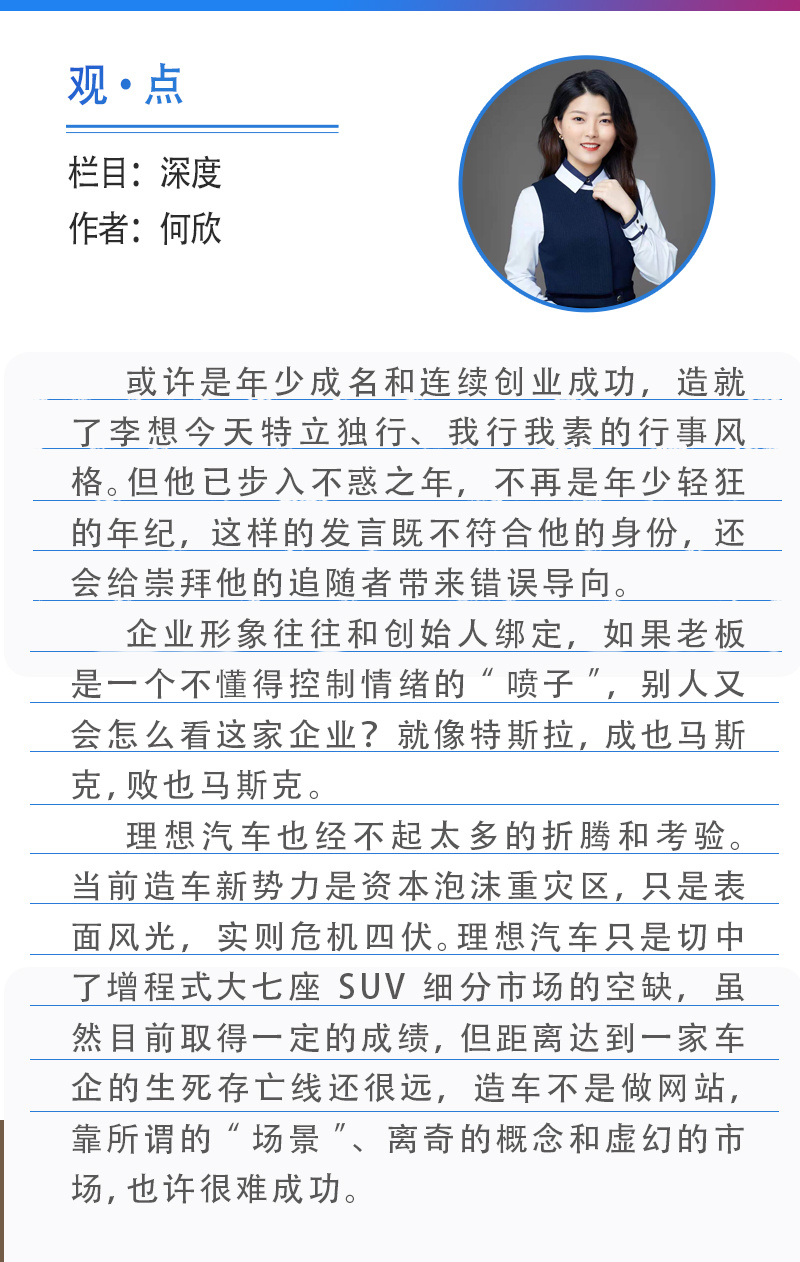 观·点
栏目：深度
作者：何欣
或许是年少成名和连续创业成功，造就
了李想今天特立独行、我行我素的行事风
格。但他已步入不惑之年，不再是年少轻狂
的年纪，这样的发言既不符合他的身份，还
会给崇拜他的追随者带来错误导向。
企业形象往往和创始人绑定，如果老板
是一个不懂得控制情绪的“喷子”，别人又
会怎么看这家企业？就像特斯拉，成也马斯
克，败也马斯克。
理想汽车也经不起太多的折腾和考验。
当前造车新势力是资本泡沫重灾区，只是表
面风光，实则危机四伏。理想汽车只是切中
了增程式大七座 SUV 细分市场的空缺，虽
然目前取得一定的成绩，但距离达到一家车
企的生死存亡线还很远，造车不是做网站，
靠所谓的“场景”、离奇的概念和虚幻的市
场，也许很难成功。